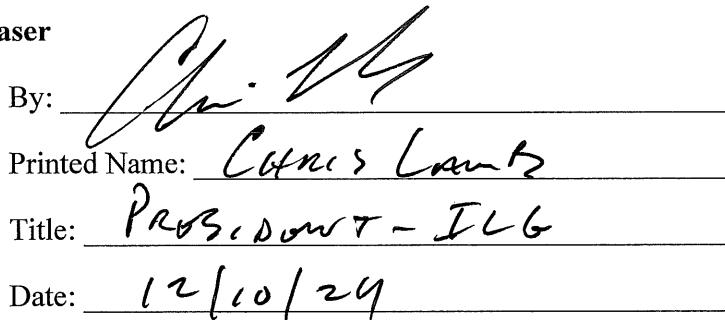 aser
By:
Printed Name: CHRIS LAMB
Title: PRESIDENT - ILG
Date: 12/10/24